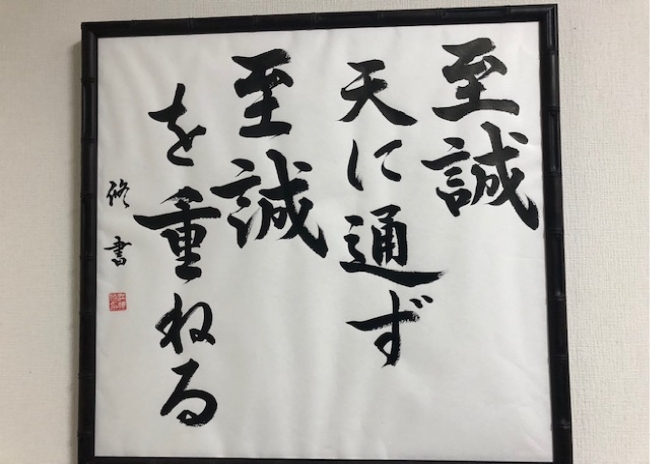 至誠
天に通ず
至誠
を重ねる
修書